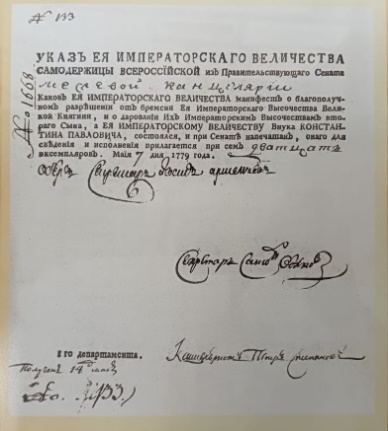 № 133
УКАЗЪ ЕЯ ИМПЕРАТОРСКАГО ВЕЛИЧЕСТВА
САМОДЕРЖИЦЫ ВСЕРОССІЙСКОЙ изъ Правительствующаго Сената
межевой Канцеляріи
Каковъ ЕЯ ИМПЕРАТОРСКАГО ВЕЛИЧЕСТВА манифестъ о благополуч-
номъ разрѣшеніи отъ бремени Ея Императорскаго Высочества Вели-
кой Княгини, и о дарованіи Ихъ Императорскимъ Высочествамъ вто-
раго Сына, а ЕЯ ИМПЕРАТОРСКОМУ ВЕЛИЧЕСТВУ Внука КОНСТАН-
ТИНА ПАВЛОВИЧА, состоялся, и при Сенатѣ напечатанъ, онаго для
свѣденія и исполненія прилагается при семъ дватцать
экземпляровъ. Маія 7 дня 1779 года.
№ 1668
Оберъ Секретарь
Секретарь
1 го департамента.
Полученъ 14
Канцеляристъ Петръ
№ 133